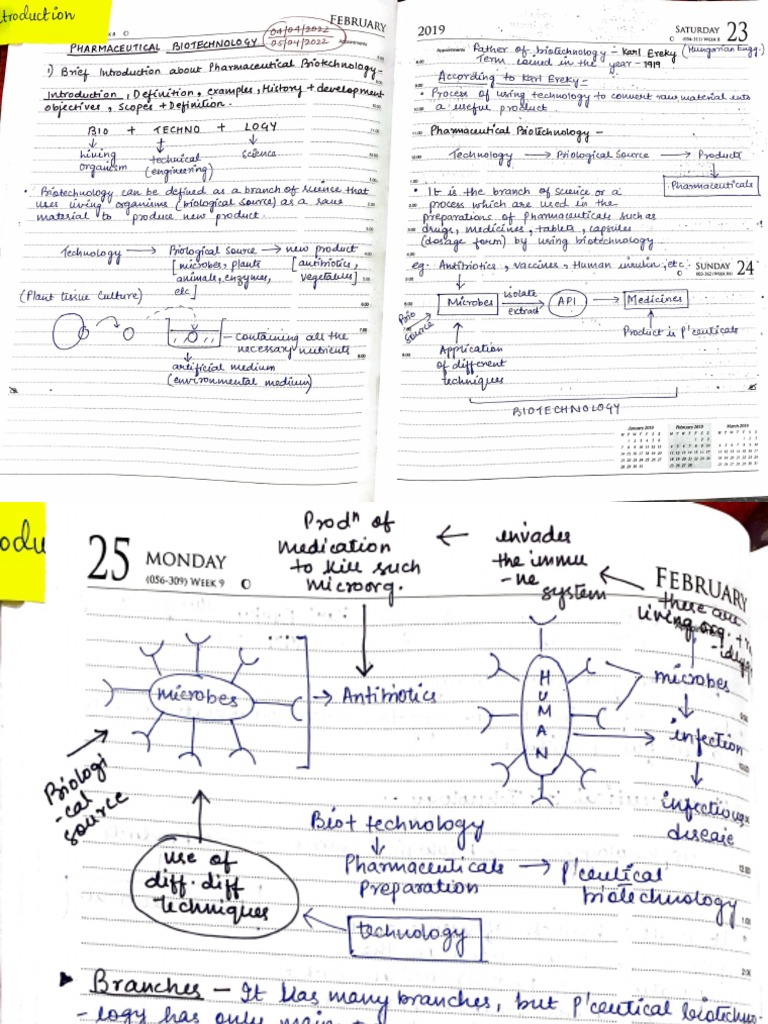 troduction
FEBRUARY
PHARMACEUTICAL BIOTECHNOLOGY
04/04/2022
05/04/2022
1) Brief Introduction about Pharmaceutical Biotechnology-
Introduction, Definition, examples, History + development
objectives, scopes + Definition.
BIO + TECHNO + LOGY
living organism
technical (engineering)
science
• Biotechnology can be defined as a branch of science that
uses living organisms (biological source) as a raw
material to produce new product.
Technology → Biological source → new product
[microbes, plants animals, enzymes, etc]
[antibiotics, vegetables]
(Plant tissue culture)
- containing all the
necessary nutrients
artificial medium
(environmental medium)
2019
SATURDAY 23
(054-311) WEEK 8
Appointments
Father of biotechnology - Karl Ereky (Hungarian Engg.)
Term coined in the year - 1919
According to Karl Ereky -
• Process of using technology to convert raw material into
a useful product.
Pharmaceutical Biotechnology -
Technology → Biological Source → Products
Pharmaceuticals
• It is the branch of science or a
process which are used in the
preparations of pharmaceuticals such as
drugs, medicines, tablets, capsules
(dosage form) by using biotechnology
eg: Antibiotics, vaccines, Human insulin, etc.
SUNDAY 24
Microbes
isolate
extract
API
→ Medicines
Bio source
Product is P'ceuticals
Application
of different
techniques
BIOTECHNOLOGY
January 2019
February 2019
March 2019
odu
25 MONDAY
(056-309) WEEK 9
FEBRUARY
Prodⁿ of
medication
to kill such
microorg.
← invades
the immu
-ne
system
these are
living org.
microbes
→ Antibiotics
HUMAN
microbes
infection
infectious
disease
Biologi
-cal
source
Bio + technology
Pharmaceuticals → P'ceutical
Preparation
biotechnology
use of
diff. diff
techniques
technology
▶ Branches - It has many branches, but P'ceutical biotechno
-logy has only